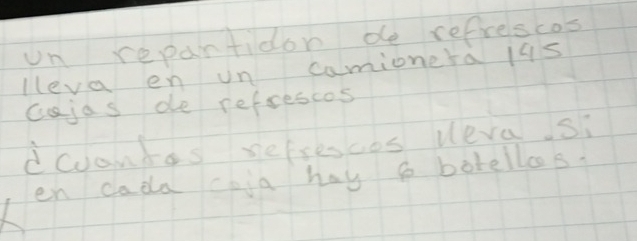 un repartidor de refrescos
lleva en un camioneta 145
cajas de refrescos
¿cuantos refrescos lleva si
en cada caja hay botellas.